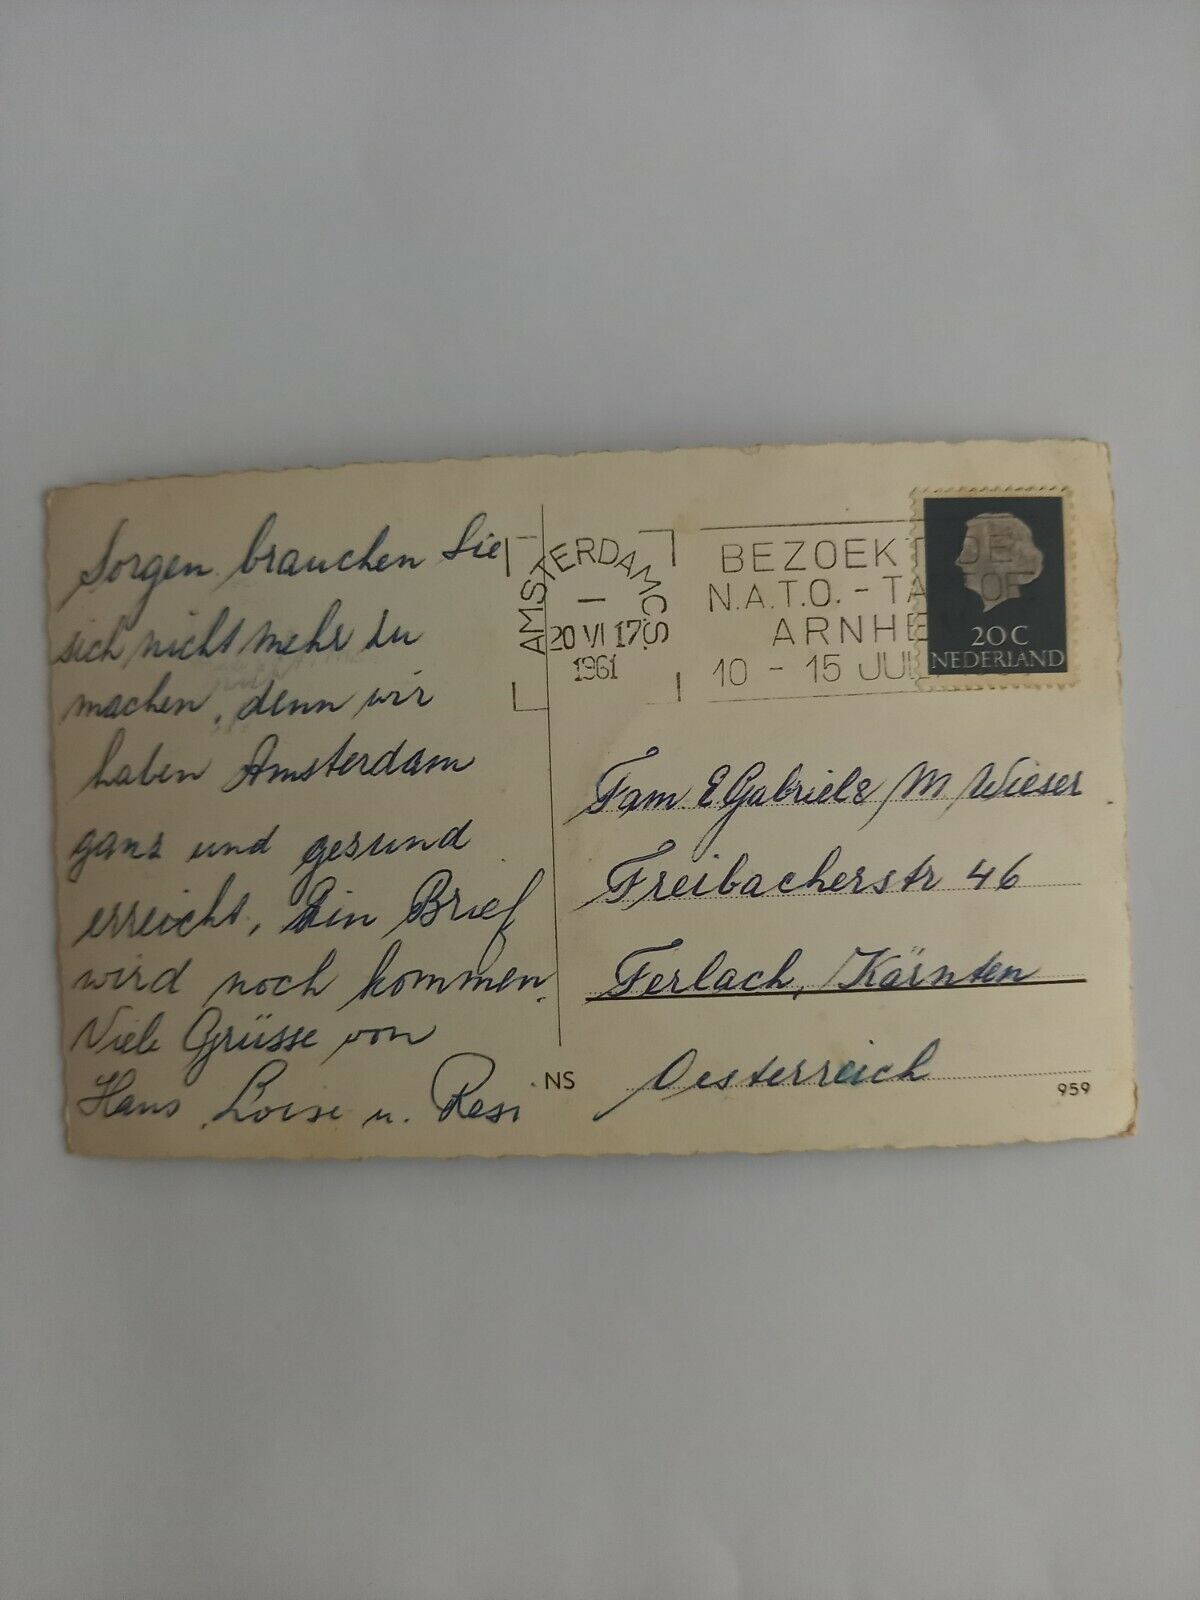 Sorgen brauchen Sie
sich nicht mehr zu
machen, denn wir
haben Amsterdam
ganz und gesund
erreicht, Ein Brief
wird noch kommen.
Viele Grüsse von
Hans, Loise u. Resi
AMSTERDAM C.S.
20 VI 17
1961
BEZOEKT DE
N.A.T.O. - TA OF
ARNHE
10 - 15 JU
20 C
NEDERLAND
Fam E Gabriele M Wieser
Freibacherstr 46
Ferlach, Kärnten
Oesterreich
NS
959